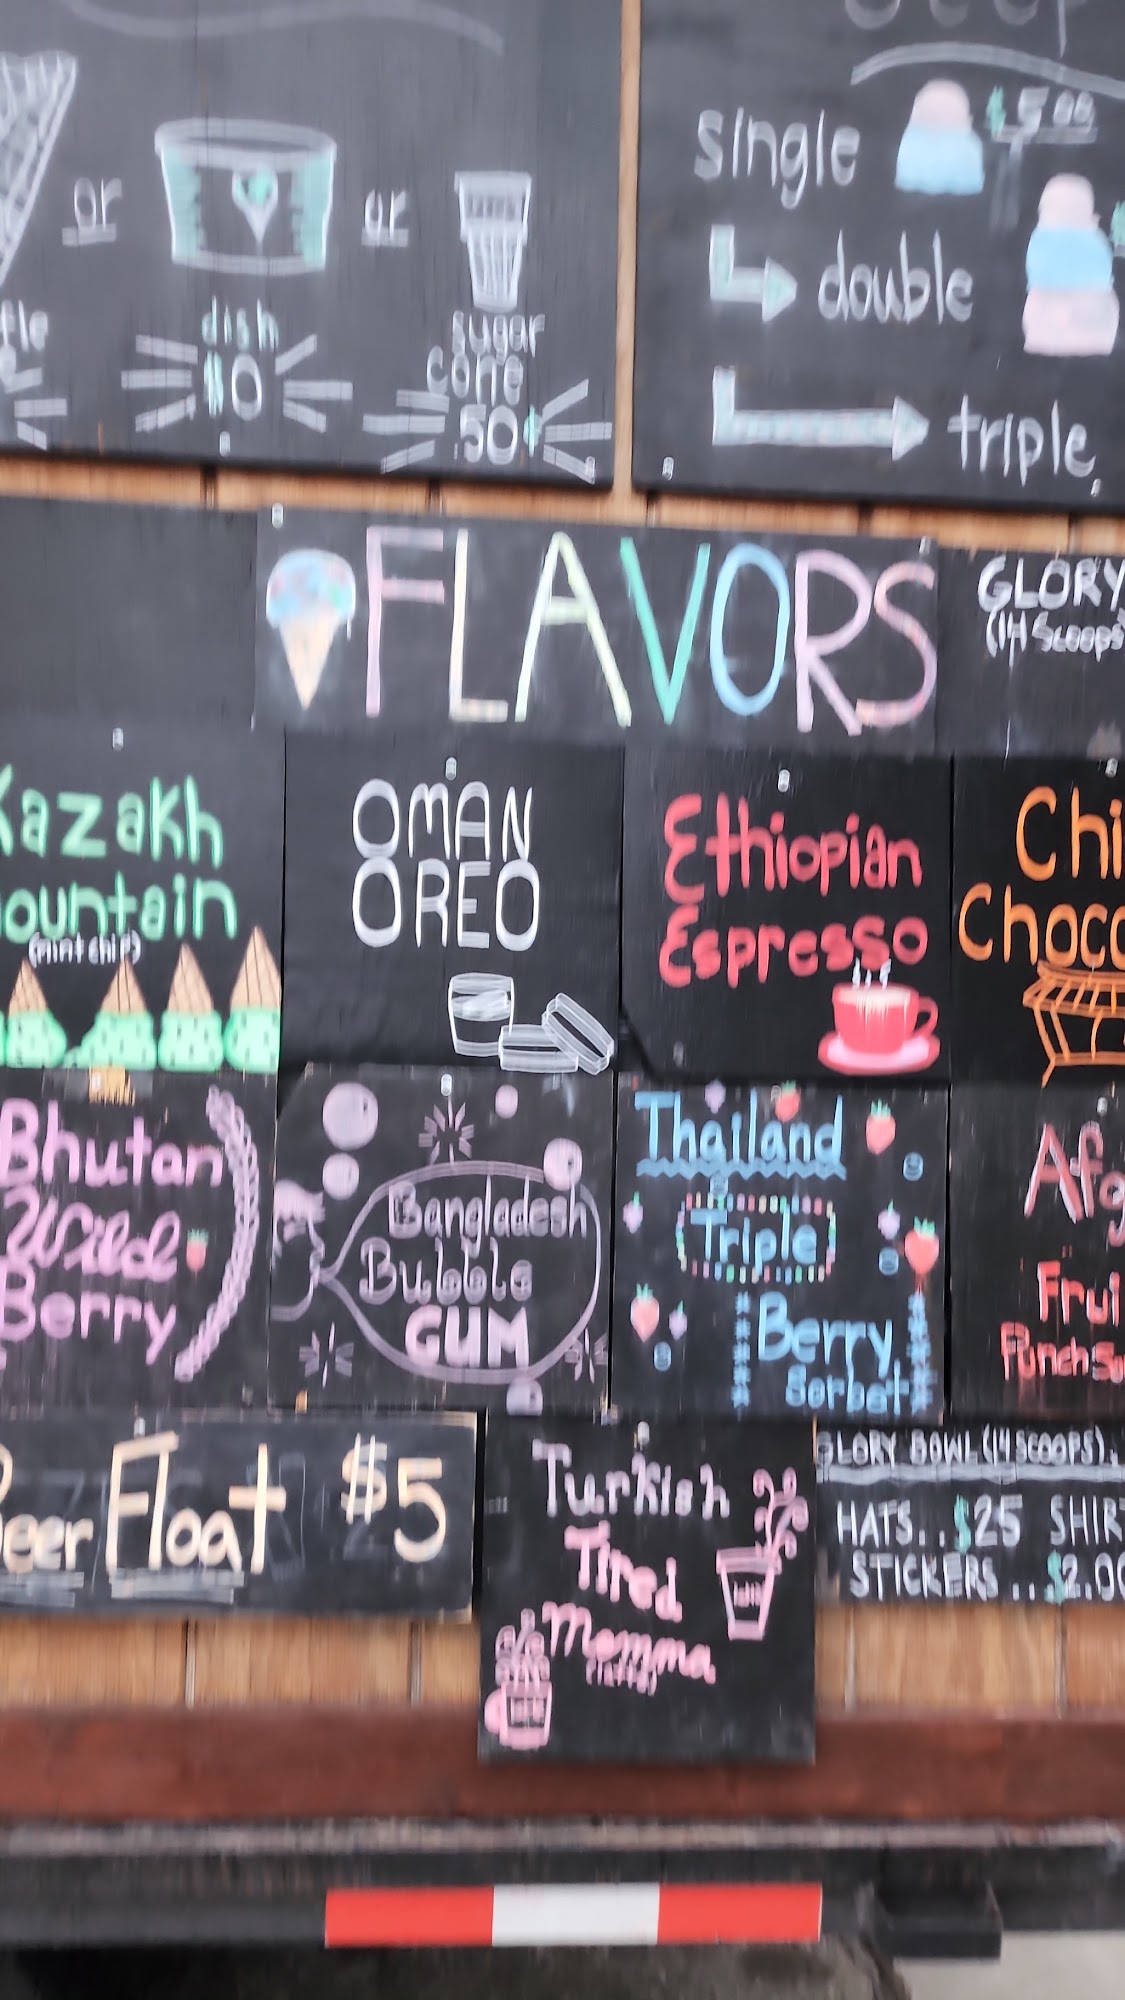 or
or
dish
$0
sugar
cone
.50¢
single $5.00
double
triple
FLAVORS
GLORY
(14 Scoops)
Kazakh
(mint chip)
OMAN
OREO
Ethiopian
Espresso
Bhutan
Wild
Berry
Bangladesh
Bubble
GUM
Thailand
Triple
Berry
Sorbet
Float $5
Turkish
Tired
Momma
GLORY BOWL (14 SCOOPS)
HATS..$25
STICKERS...$2.00